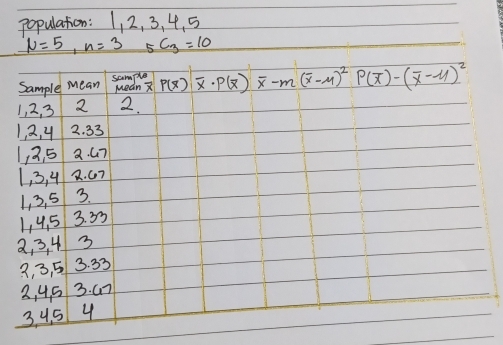 population: 1,2,3,4,5
N=5, n=3 5C3=10
Sample mean sample Mean x̄ P(x̄) x̄·P(x̄) x̄-m (x̄-μ)² P(x̄)-(x̄-μ)²
1,2,3 2 2.
1,2,4 2.33
1,2,5 2.67
1,3,4 2.67
1,3,5 3.
1,4,5 3.33
2,3,4 3
2,3,5 3.33
2,4,5 3.67
3,4,5 4